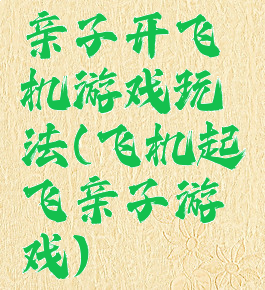 亲子开飞
机游戏玩
法(飞机起
飞亲子游
戏)